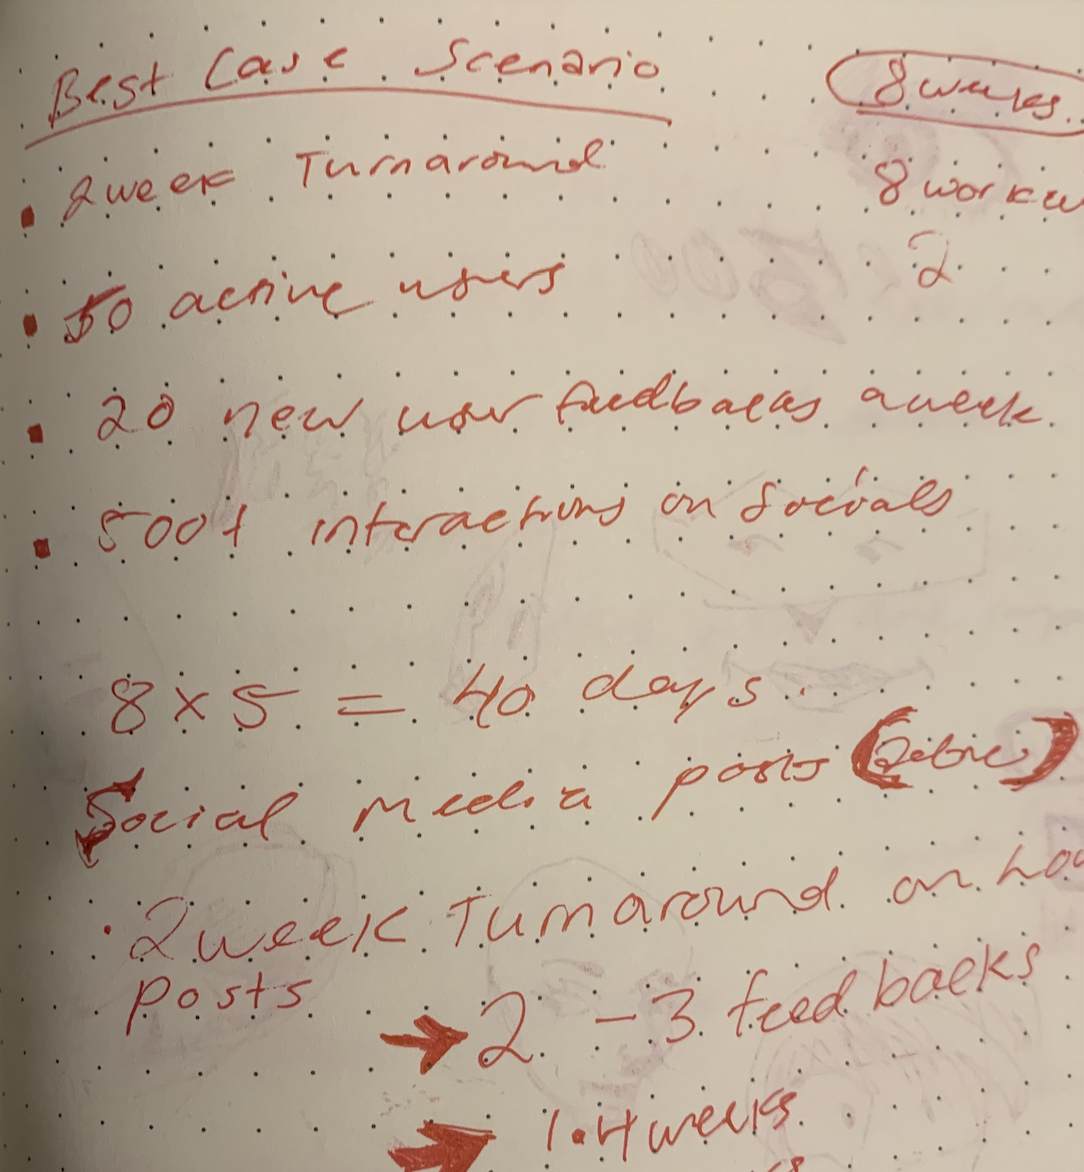 Best Case Scenario
8 weeks
2 week Turnaround
8 work
50 active users
2
20 new user feedbacks a week
500+ interactions on Socials
8 x 5 = 40 days
Social Media posts
2 week Turnaround on
posts
→ 2 - 3 feedbacks
→ 1.4 weeks